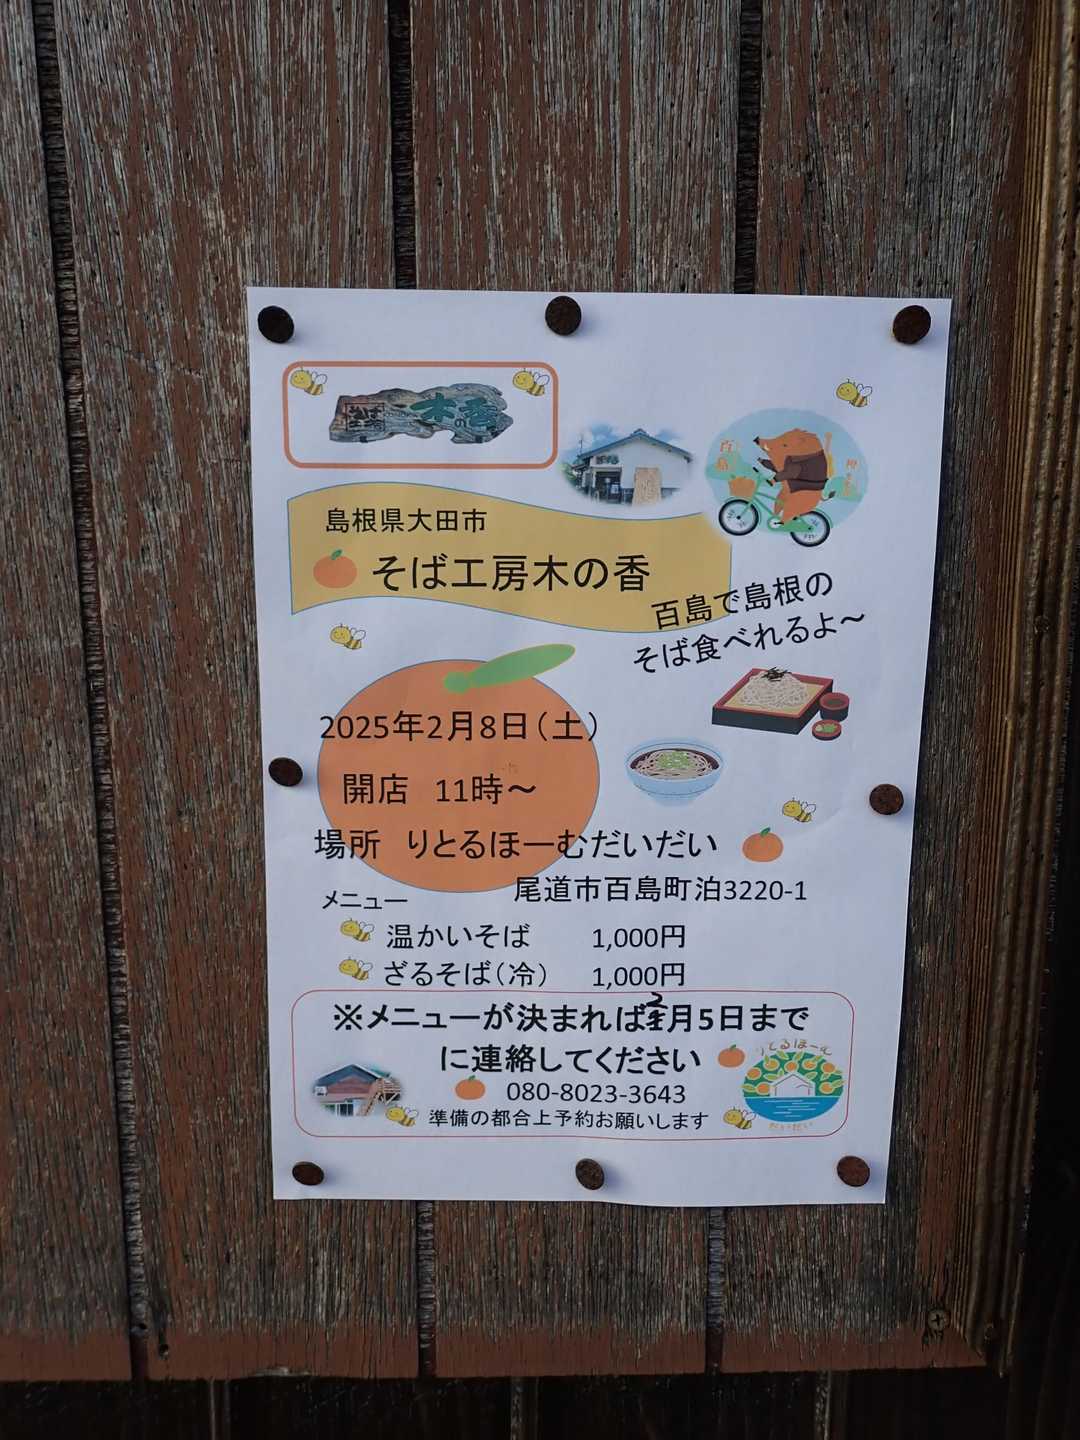 そば工房 木の香
百島
島根県大田市
そば工房木の香
百島で島根の
そば食べれるよ～
2025年2月8日（土）
開店 11時～
場所 りとるほーむだいだい
尾道市百島町泊3220-1
メニュー
温かいそば 1,000円
ざるそば（冷） 1,000円
※メニューが決まれば2月5日まで
に連絡してください
080-8023-3643
準備の都合上予約お願いします
りとるほーむ
だいだい